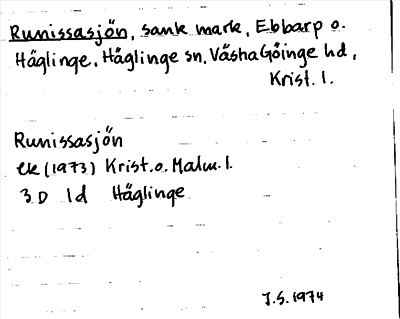 Runissasjön, sank mark, Ebbarp o.
Häglinge, Häglinge sn, Västra Göinge hd,
Krist. l.
Runissasjön
ek (1973) Krist. o. Malm. l.
3 D 1d Häglinge
J.S. 1974